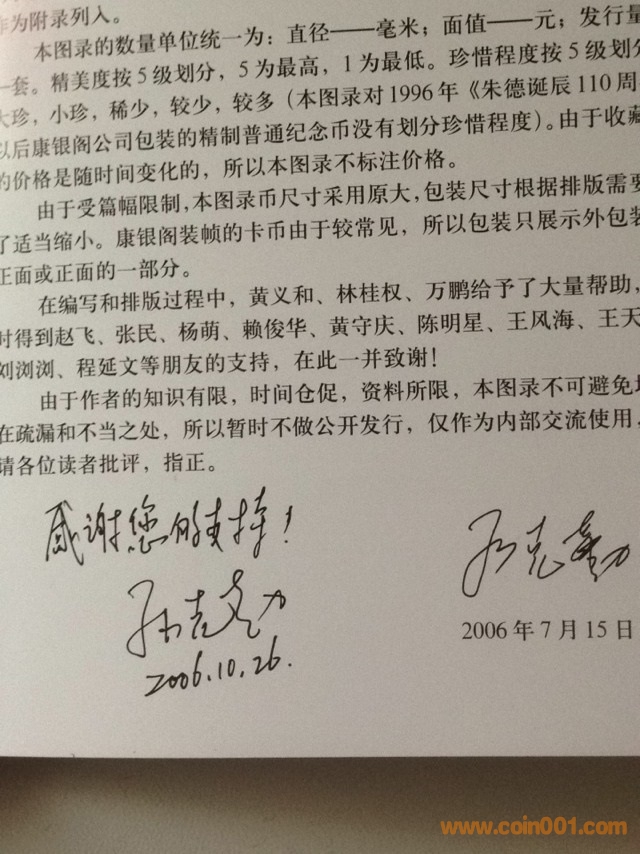 作为附录列入。
本图录的数量单位统一为：直径——毫米；面值——元；发行量
—套。精美度按5级划分，5为最高，1为最低。珍惜程度按5级划
大珍，小珍，稀少，较少，较多（本图录对1996年《朱德诞辰110周
以后康银阁公司包装的精制普通纪念币没有划分珍惜程度）。由于收藏
的价格是随时间变化的，所以本图录不标注价格。
由于受篇幅限制，本图录币尺寸采用原大，包装尺寸根据排版需要
了适当缩小。康银阁装帧的卡币由于较常见，所以包装只展示外包装
正面或正面的一部分。
在编写和排版过程中，黄义和、林桂权、万鹏给予了大量帮助，
时得到赵飞、张民、杨萌、赖俊华、黄守庆、陈明星、王风海、王天
刘浏浏、程延文等朋友的支持，在此一并致谢！
由于作者的知识有限，时间仓促，资料所限，本图录不可避免地
在疏漏和不当之处，所以暂时不做公开发行，仅作为内部交流使用，
请各位读者批评，指正。
感谢您的支持！
孙克勤
2006年7月15日
孙克勤
2006.10.26.
www.coin001.com